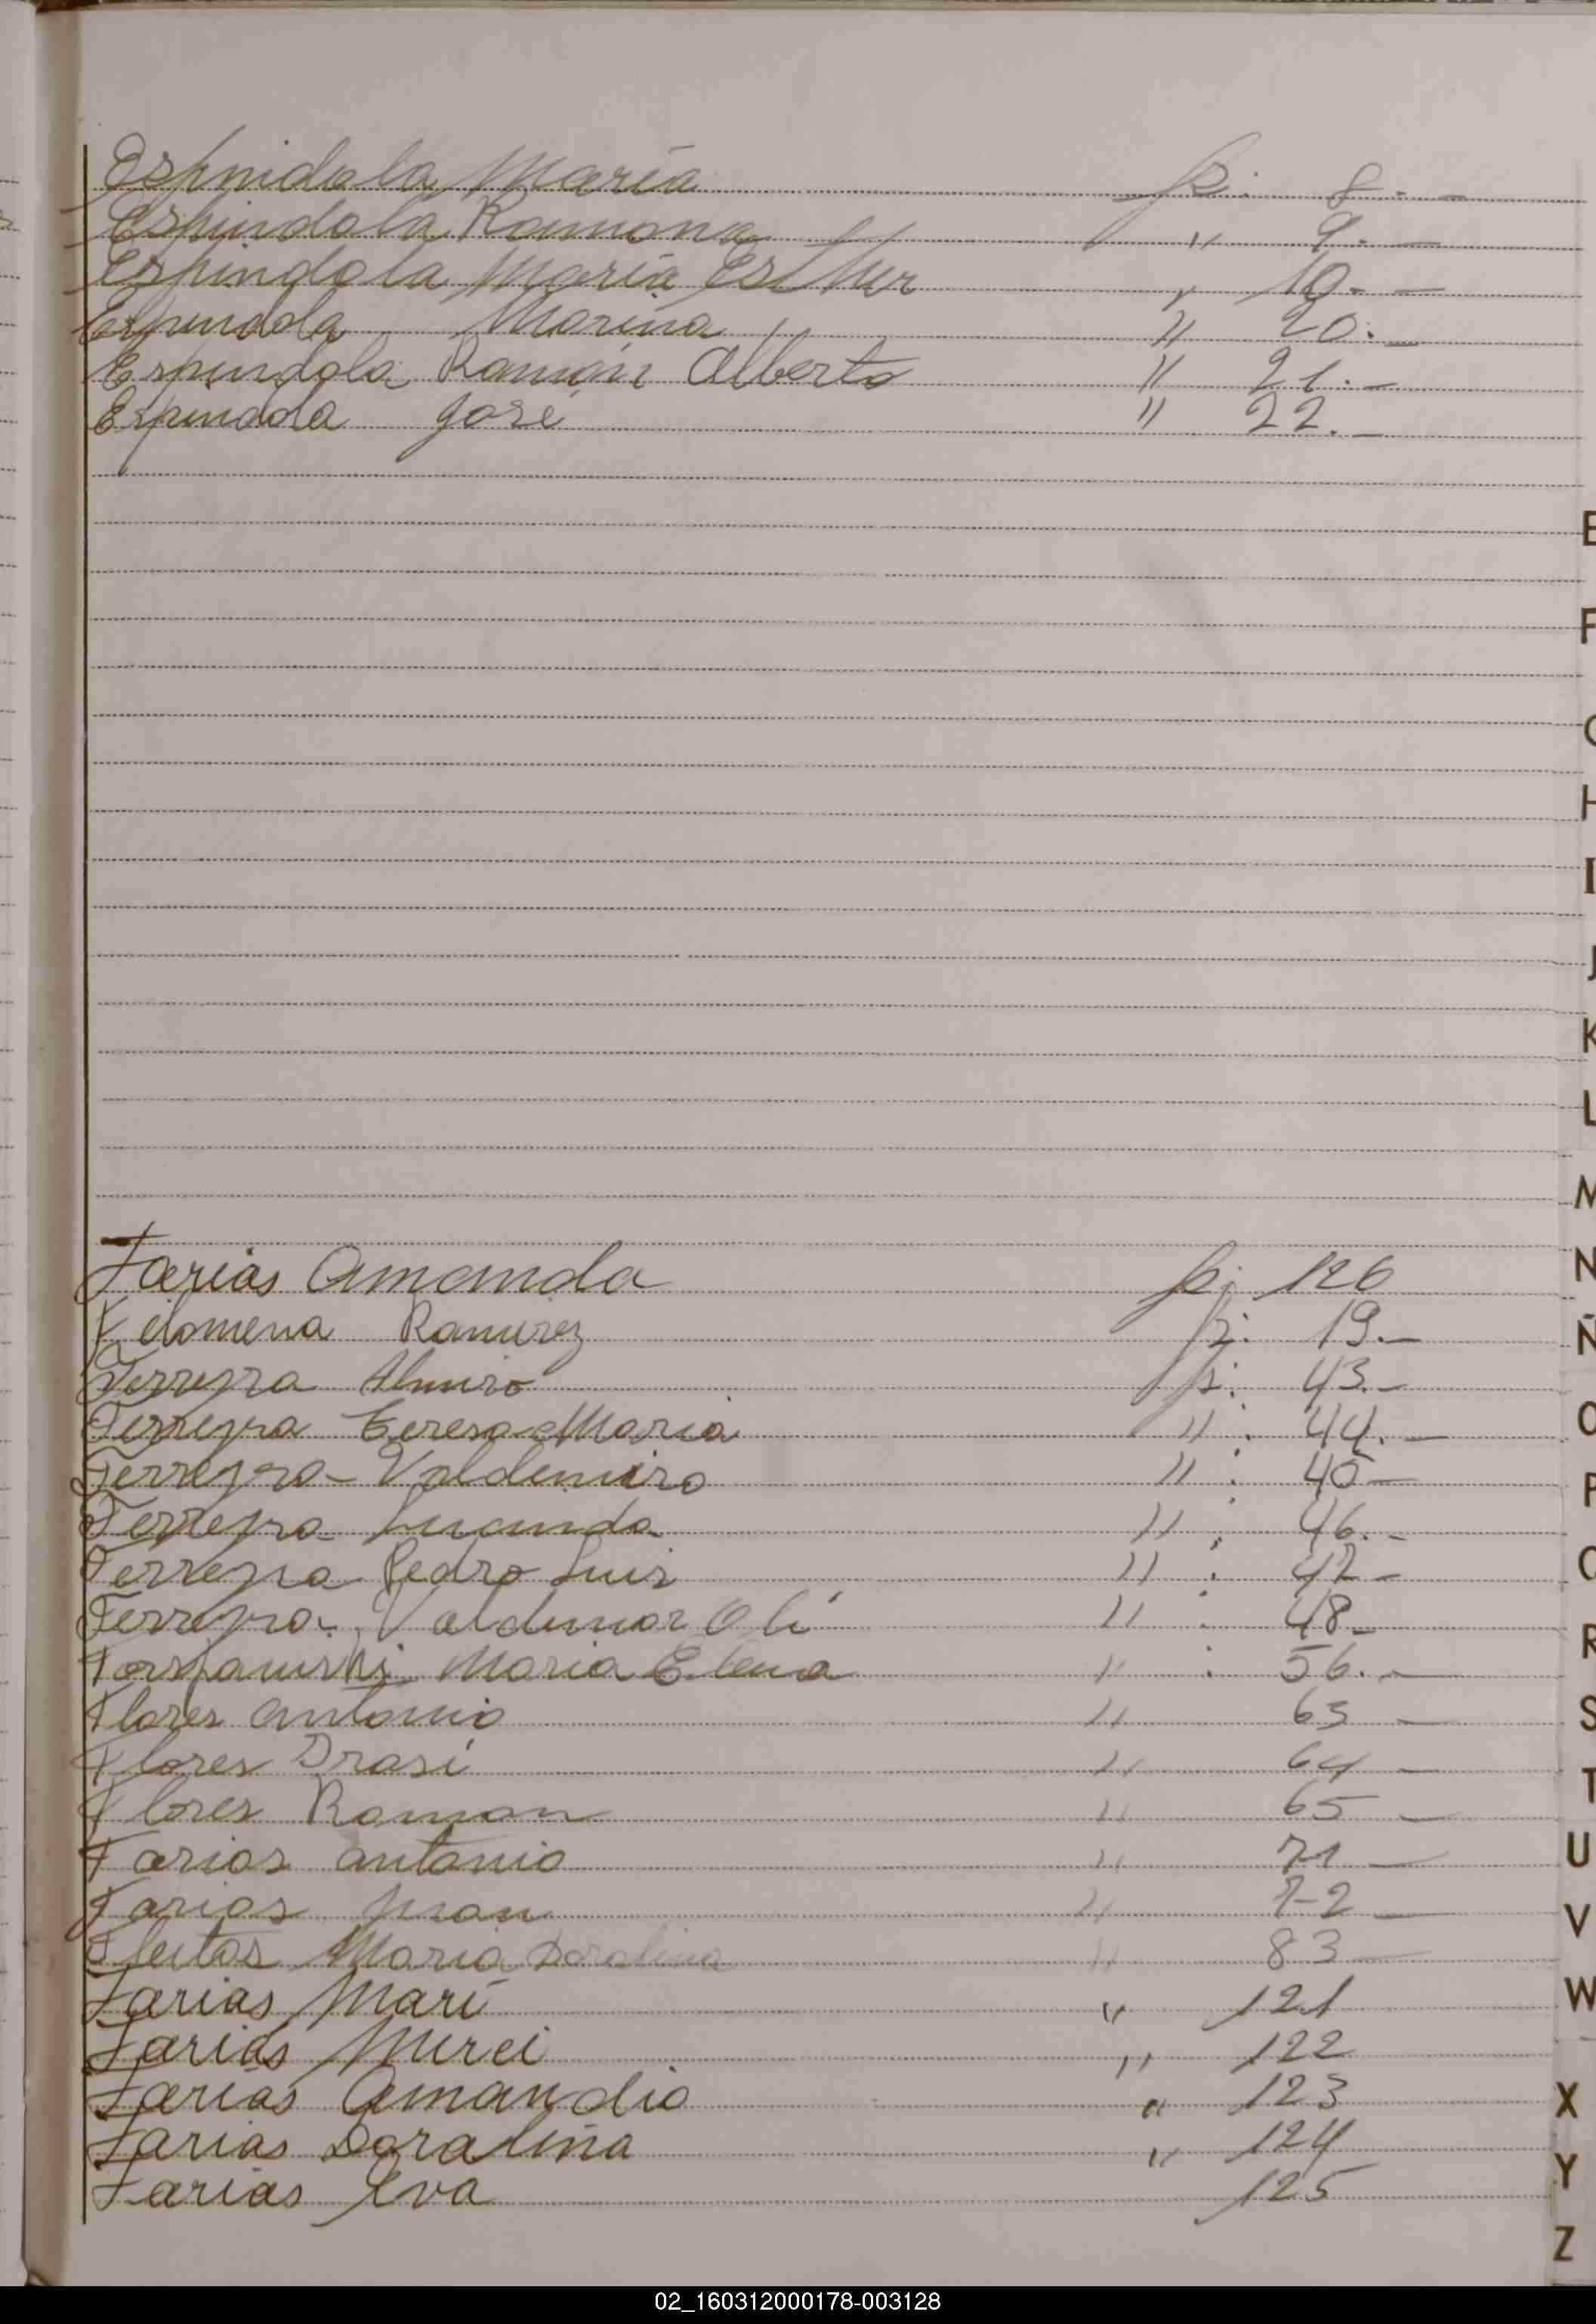 Espindola María fs: 8.-
Espindola Ramona " 9.-
Espindola María Esther " 19.-
Espindola Marina " 20.-
Espindola Ramón Alberto " 21.-
Espindola José " 22.-
E
F
G
H
I
J
K
L
M
N
Ñ
O
P
Q
R
S
T
U
V
W
X
Y
Z
Farias Amanda fs: 126
Filomena Ramirez fs: 19.-
Ferreyra Almiro fs: 43.-
Ferreyra Teresa Maria " : 44.-
Ferreyra - Valdemiro " : 45-
Ferreyra Lucinda " : 46.-
Ferreyra Pedro Luis " : 47-
Ferreyra Valdemar Oli " : 48-
Maria Elena " : 56.-
Flores Antonio " 63 -
Flores Drasi " 64 -
Flores Ramon " 65 -
Farias Antonio " 71 -
Farias Juan " 72 -
Fleitas Maria Doralina " 83 -
Farias Mari " 121
Farias Mirei " 122
Farias Amandio " 123
Farias Doralina " 124
Farias Eva 125
02_160312000178-003128